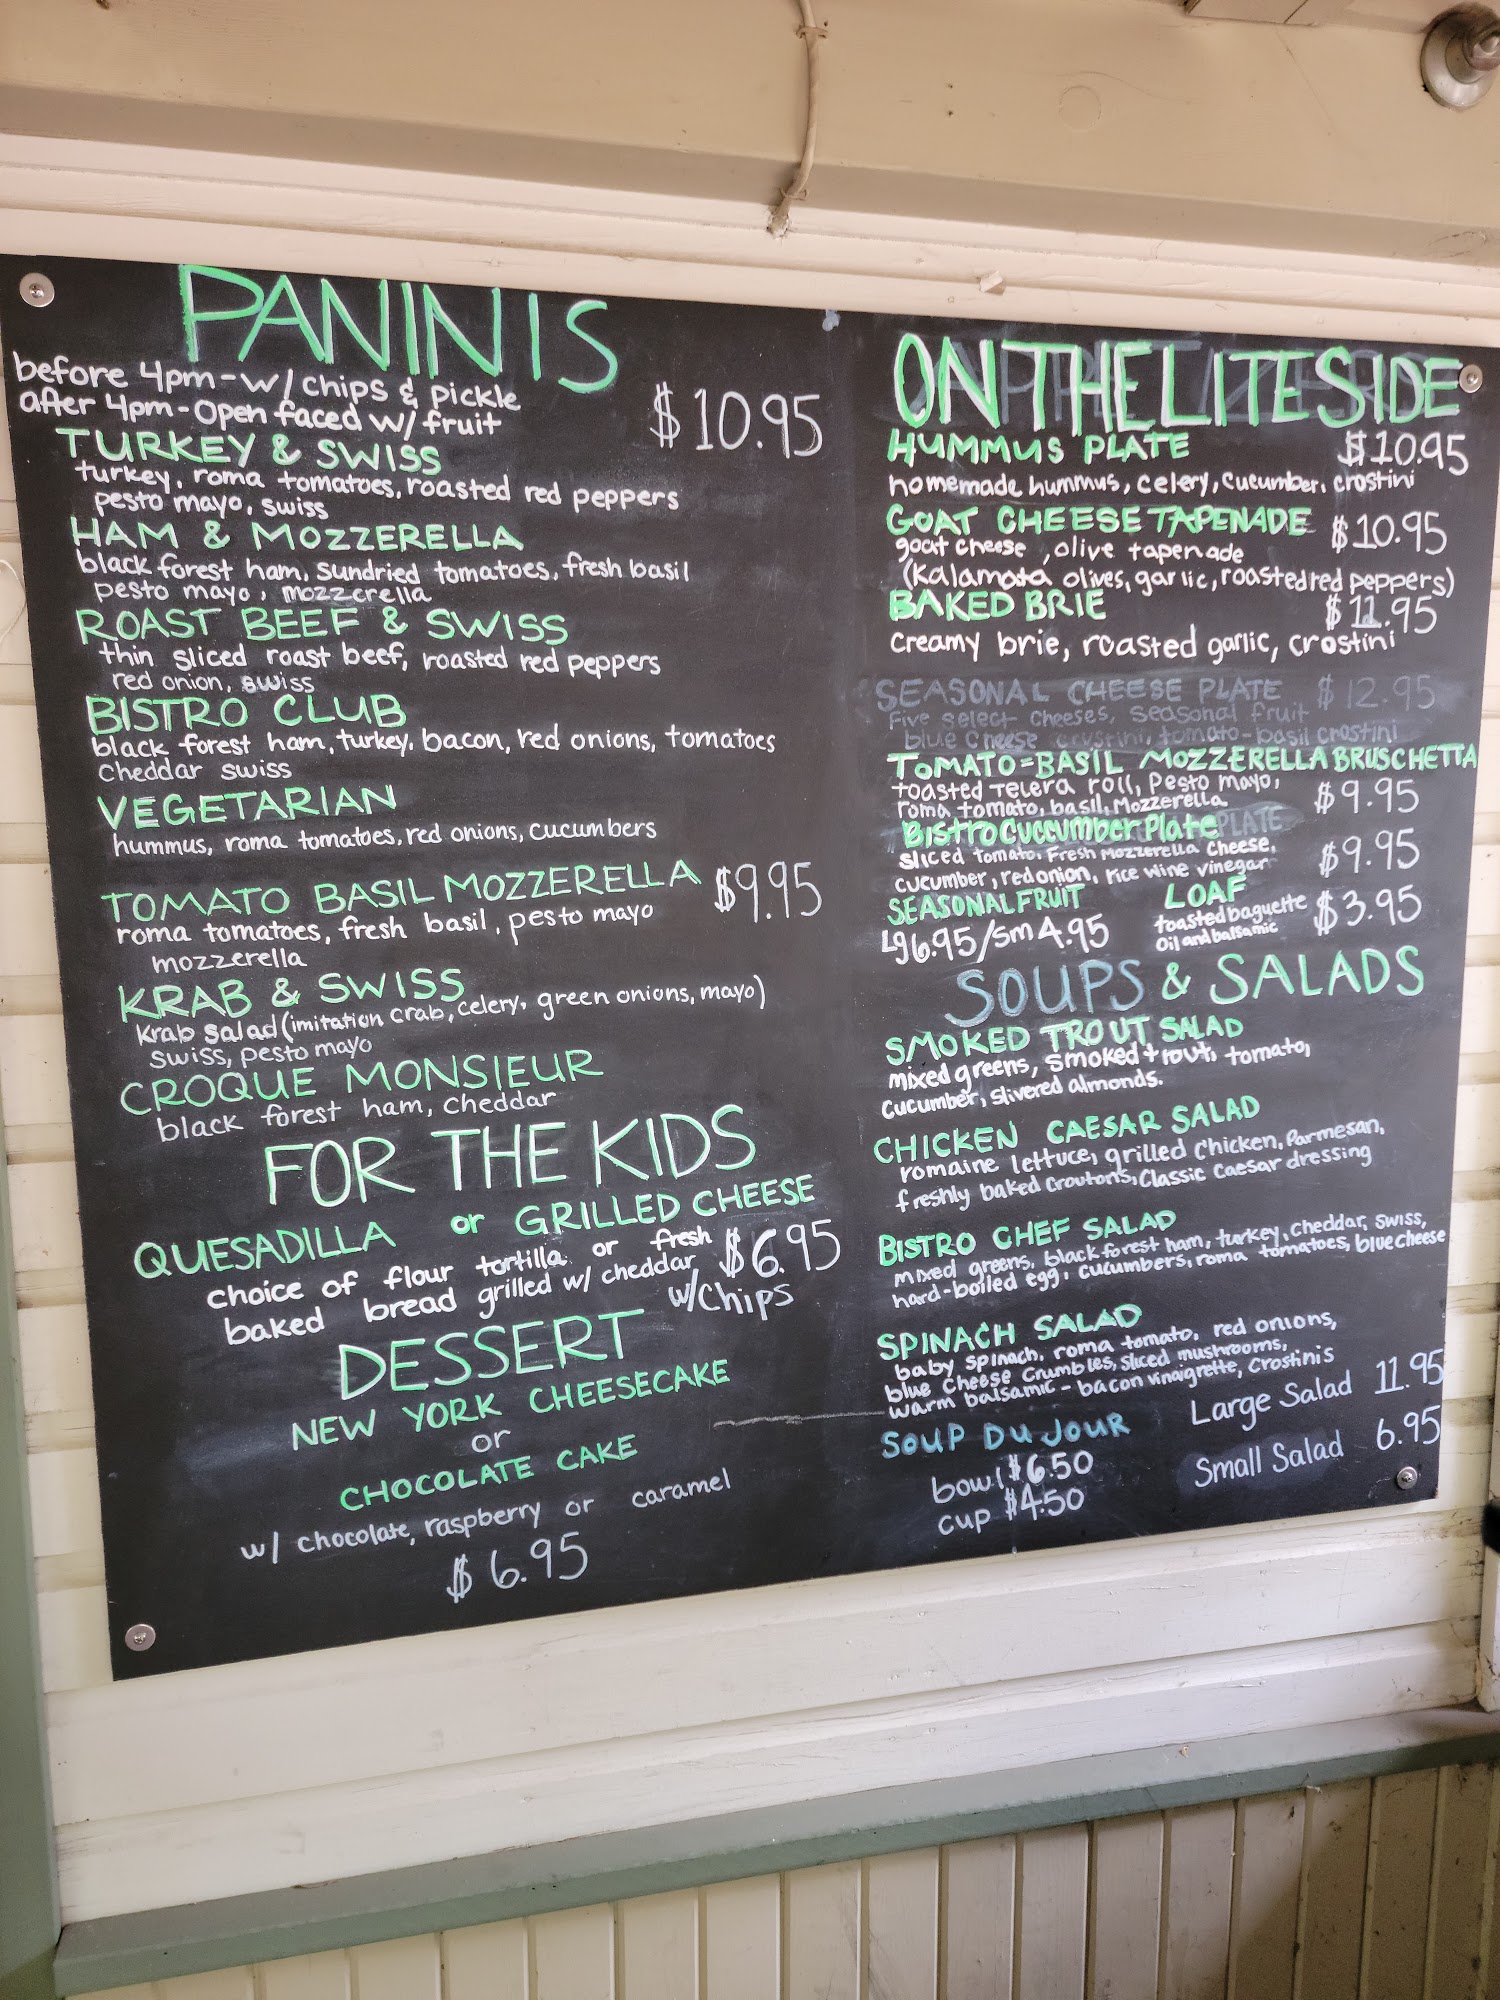 PANINIS
before 4pm-w/ chips & pickle
after 4pm-open faced w/ fruit
$10.95
TURKEY & SWISS
turkey, roma tomatoes, roasted red peppers
pesto mayo, swiss
HAM & MOZZERELLA
black forest ham, sundried tomatoes, fresh basil
pesto mayo, mozzerella
ROAST BEEF & SWISS
thin sliced roast beef, roasted red peppers
red onion, swiss
BISTRO CLUB
black forest ham, turkey, bacon, red onions, tomatoes
cheddar swiss
VEGETARIAN
hummus, roma tomatoes, red onions, cucumbers
TOMATO BASIL MOZZERELLA $9.95
roma tomatoes, fresh basil, pesto mayo
mozzerella
KRAB & SWISS
krab salad (imitation crab, celery, green onions, mayo)
swiss, pesto mayo
CROQUE MONSIEUR
black forest ham, cheddar
FOR THE KIDS
QUESADILLA or GRILLED CHEESE
choice of flour tortilla or fresh $6.95
baked bread grilled w/ cheddar w/chips
DESSERT
NEW YORK CHEESECAKE
or
CHOCOLATE CAKE
w/ chocolate, raspberry or caramel
$6.95
ON THE LITE SIDE
HUMMUS PLATE $10.95
homemade hummus, celery, cucumber, crostini
GOAT CHEESE TAPENADE $10.95
goat cheese, olive tapenade
(Kalamata olives, garlic, roasted red peppers)
BAKED BRIE $11.95
creamy brie, roasted garlic, crostini
SEASONAL CHEESE PLATE $12.95
Five select cheeses, seasonal fruit
blue cheese crustini, tomato-basil crostini
TOMATO-BASIL MOZZERELLA BRUSCHETTA
toasted Telera roll, Pesto mayo, $9.95
roma tomato, basil, Mozzerella
Bistro Cuccumber Plate PLATE
sliced tomato, Fresh Mozzerella Cheese, $9.95
cucumber, red onion, rice wine vinegar
SEASONAL FRUIT LOAF
Lg 6.95/Sm 4.95 toasted baguette $3.95
Oil and balsamic
SOUPS & SALADS
SMOKED TROUT SALAD
mixed greens, smoked trout, tomato,
cucumber, slivered almonds.
CHICKEN CAESAR SALAD
romaine lettuce, grilled chicken, Parmesan,
freshly baked croutons, Classic Caesar dressing
BISTRO CHEF SALAD
mixed greens, black forest ham, turkey, cheddar, swiss,
hard-boiled egg, cucumbers, roma tomatoes, blue cheese
SPINACH SALAD
baby spinach, roma tomato, red onions,
blue cheese crumbles, sliced mushrooms,
warm balsamic - bacon vinaigrette, crostinis
SOUP DU JOUR Large Salad 11.95
bowl $6.50 Small Salad 6.95
cup $4.50